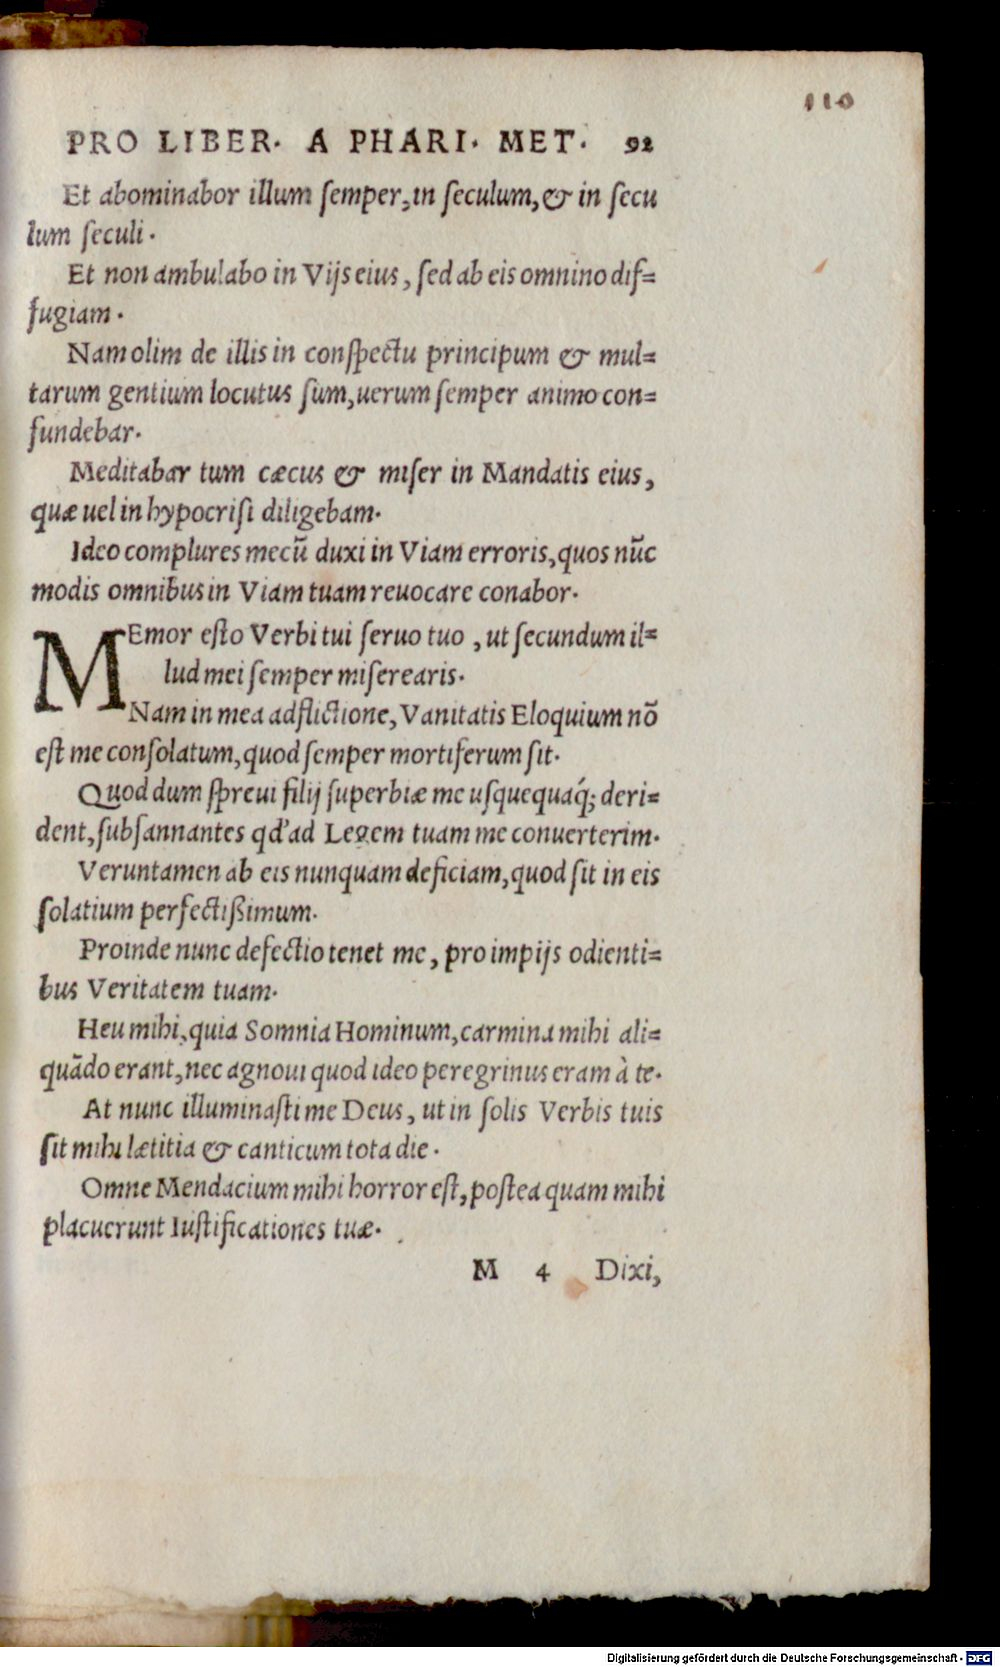 110
PRO LIBER. A PHARI. MET. 92
Et abominabor illum ſemper, in ſeculum, & in ſecu
lum ſeculi.
Et non ambulabo in Vijs eius, ſed ab eis omnino dif=
fugiam.
Nam olim de illis in conſpectu principum & mul=
tarum gentium locutus ſum, uerum ſemper animo con=
fundebar.
Meditabar tum cæcus & miſer in Mandatis eius,
quæ uel in hypocriſi diligebam.
Ideo complures mecū duxi in Viam erroris, quos nūc
modis omnibus in Viam tuam reuocare conabor.
MEmor eſto Verbi tui ſeruo tuo, ut ſecundum il=
lud mei ſemper miſerearis.
Nam in mea adflictione, Vanitatis Eloquium nō
eſt me conſolatum, quod ſemper mortiferum ſit.
Quod dum ſpreui filij ſuperbiæ me uſquequaq́; deri=
dent, ſubſannantes qd' ad Legem tuam me conuerterim.
Veruntamen ab eis nunquam deficiam, quod ſit in eis
ſolatium perfectißimum.
Proinde nunc defectio tenet me, pro impijs odienti=
bus Veritatem tuam.
Heu mihi, quia Somnia Hominum, carmina mihi ali=
quādo erant, nec agnoui quod ideo peregrinus eram à te.
At nunc illuminaſti me Deus, ut in ſolis Verbis tuis
ſit mihi lætitia & canticum tota die.
Omne Mendacium mihi horror eſt, poſtea quam mihi
placuerunt Iuſtificationes tuæ.
M 4 Dixi,
Digitalisierung gefördert durch die Deutsche Forschungsgemeinschaft - DFG